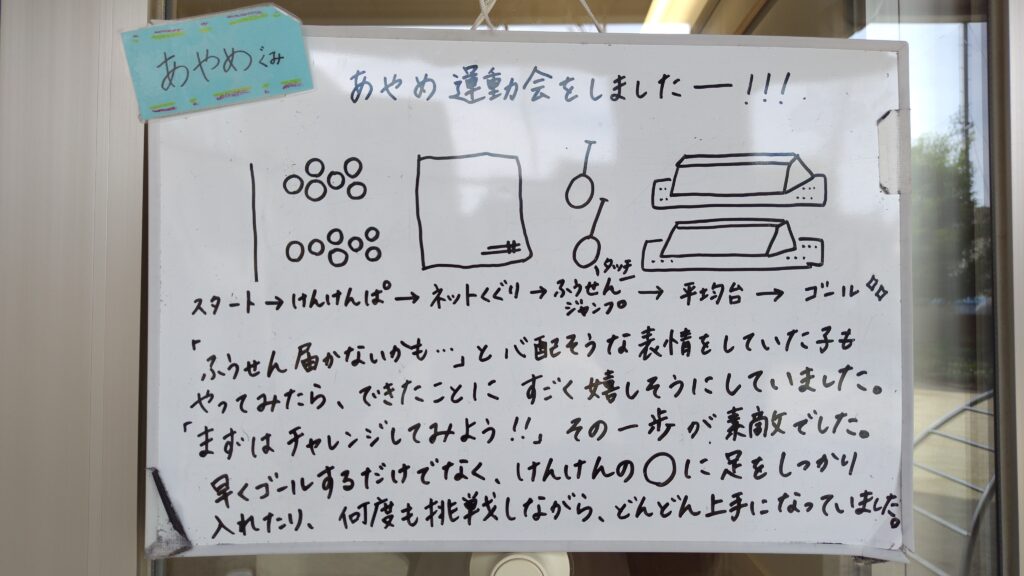 あやめぐみ
あやめ運動会をしましたー!!!
スタート→けんけんぱ→ネットくぐり→ふうせんタッチジャンプ→平均台→ゴール
「ふうせん届かないかも…」と心配そうな表情をしていた子も
やってみたら、できたことに すごく嬉しそうにしていました。
「まずはチャレンジしてみよう!!」その一歩が素敵でした。
早くゴールするだけでなく、けんけんの〇に足をしっかり
入れたり、何度も挑戦しながら、どんどん上手になっていました。